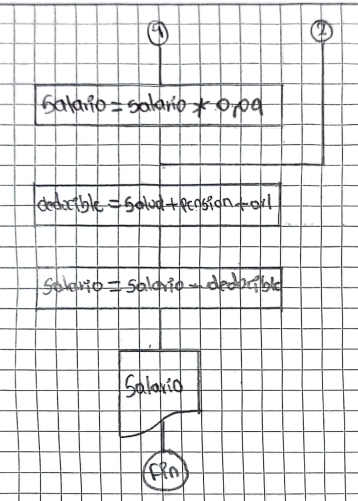 9 2
Salario = salario * 0,09
deducible = Salud + pension + arl
Salario = Salario - deducible
Salario
Fin